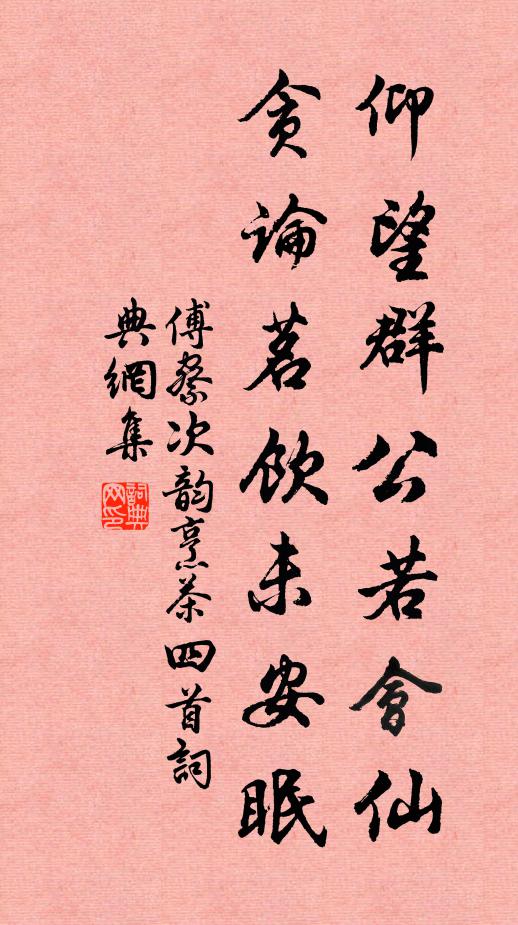 仰望群公若會仙
貪論茗飲未安眠
傅察次韵烹茶四首詞
典網集
詞典
网印